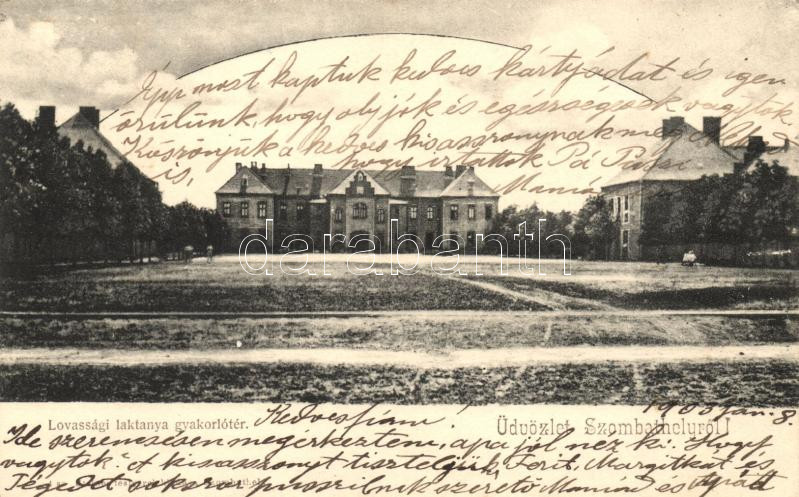 Épp most kaptuk kedves kártyádat és igen
örülünk, hogy oly jók és egészségesek vagytok
Köszönjük a kedves kisasszonynak meg
is, hogy irtatok Pá Pusi
Mama
darabanth
Lovassági laktanya gyakorlótér.
Üdvözlet Szombathelyről!
1903 jan. 8.
Kedves fiam!
Ide szerencsésen megérkeztem, apa jól néz ki. Hogy
vagytok? A kisasszonyt tiszteljük, Terit, Margitkát és
Téged sokszor puszilnak szerető Mamád és Apád